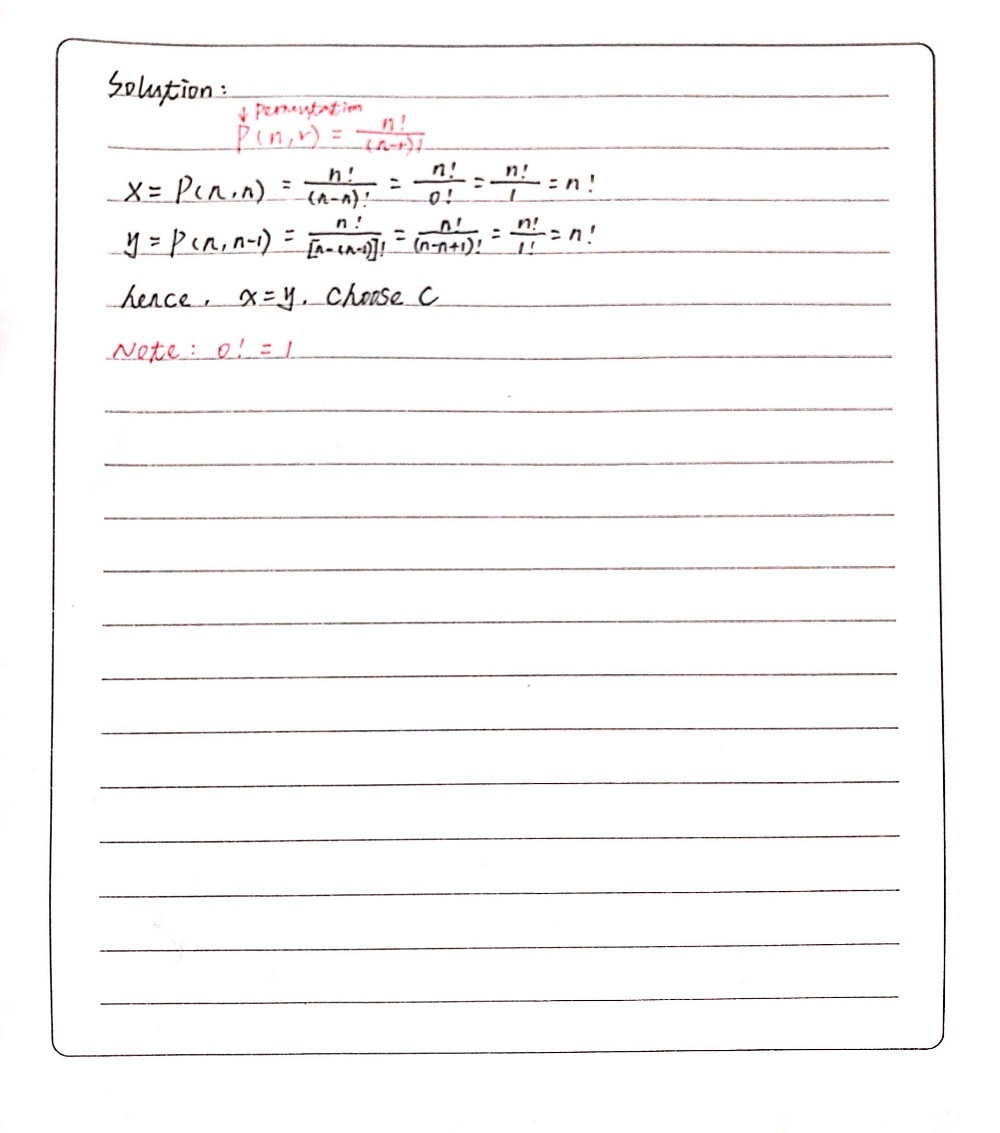 Solution:
↓ Permutation
P(n,r) = n!/(n-r)!
x = P(n,n) = n!/(n-n)! = n!/0! = n!/1 = n!
y = P(n,n-1) = n!/[n-(n-1)]! = n!/(n-n+1)! = n!/1! = n!
hence, x=y. Choose C
Note: 0! = 1